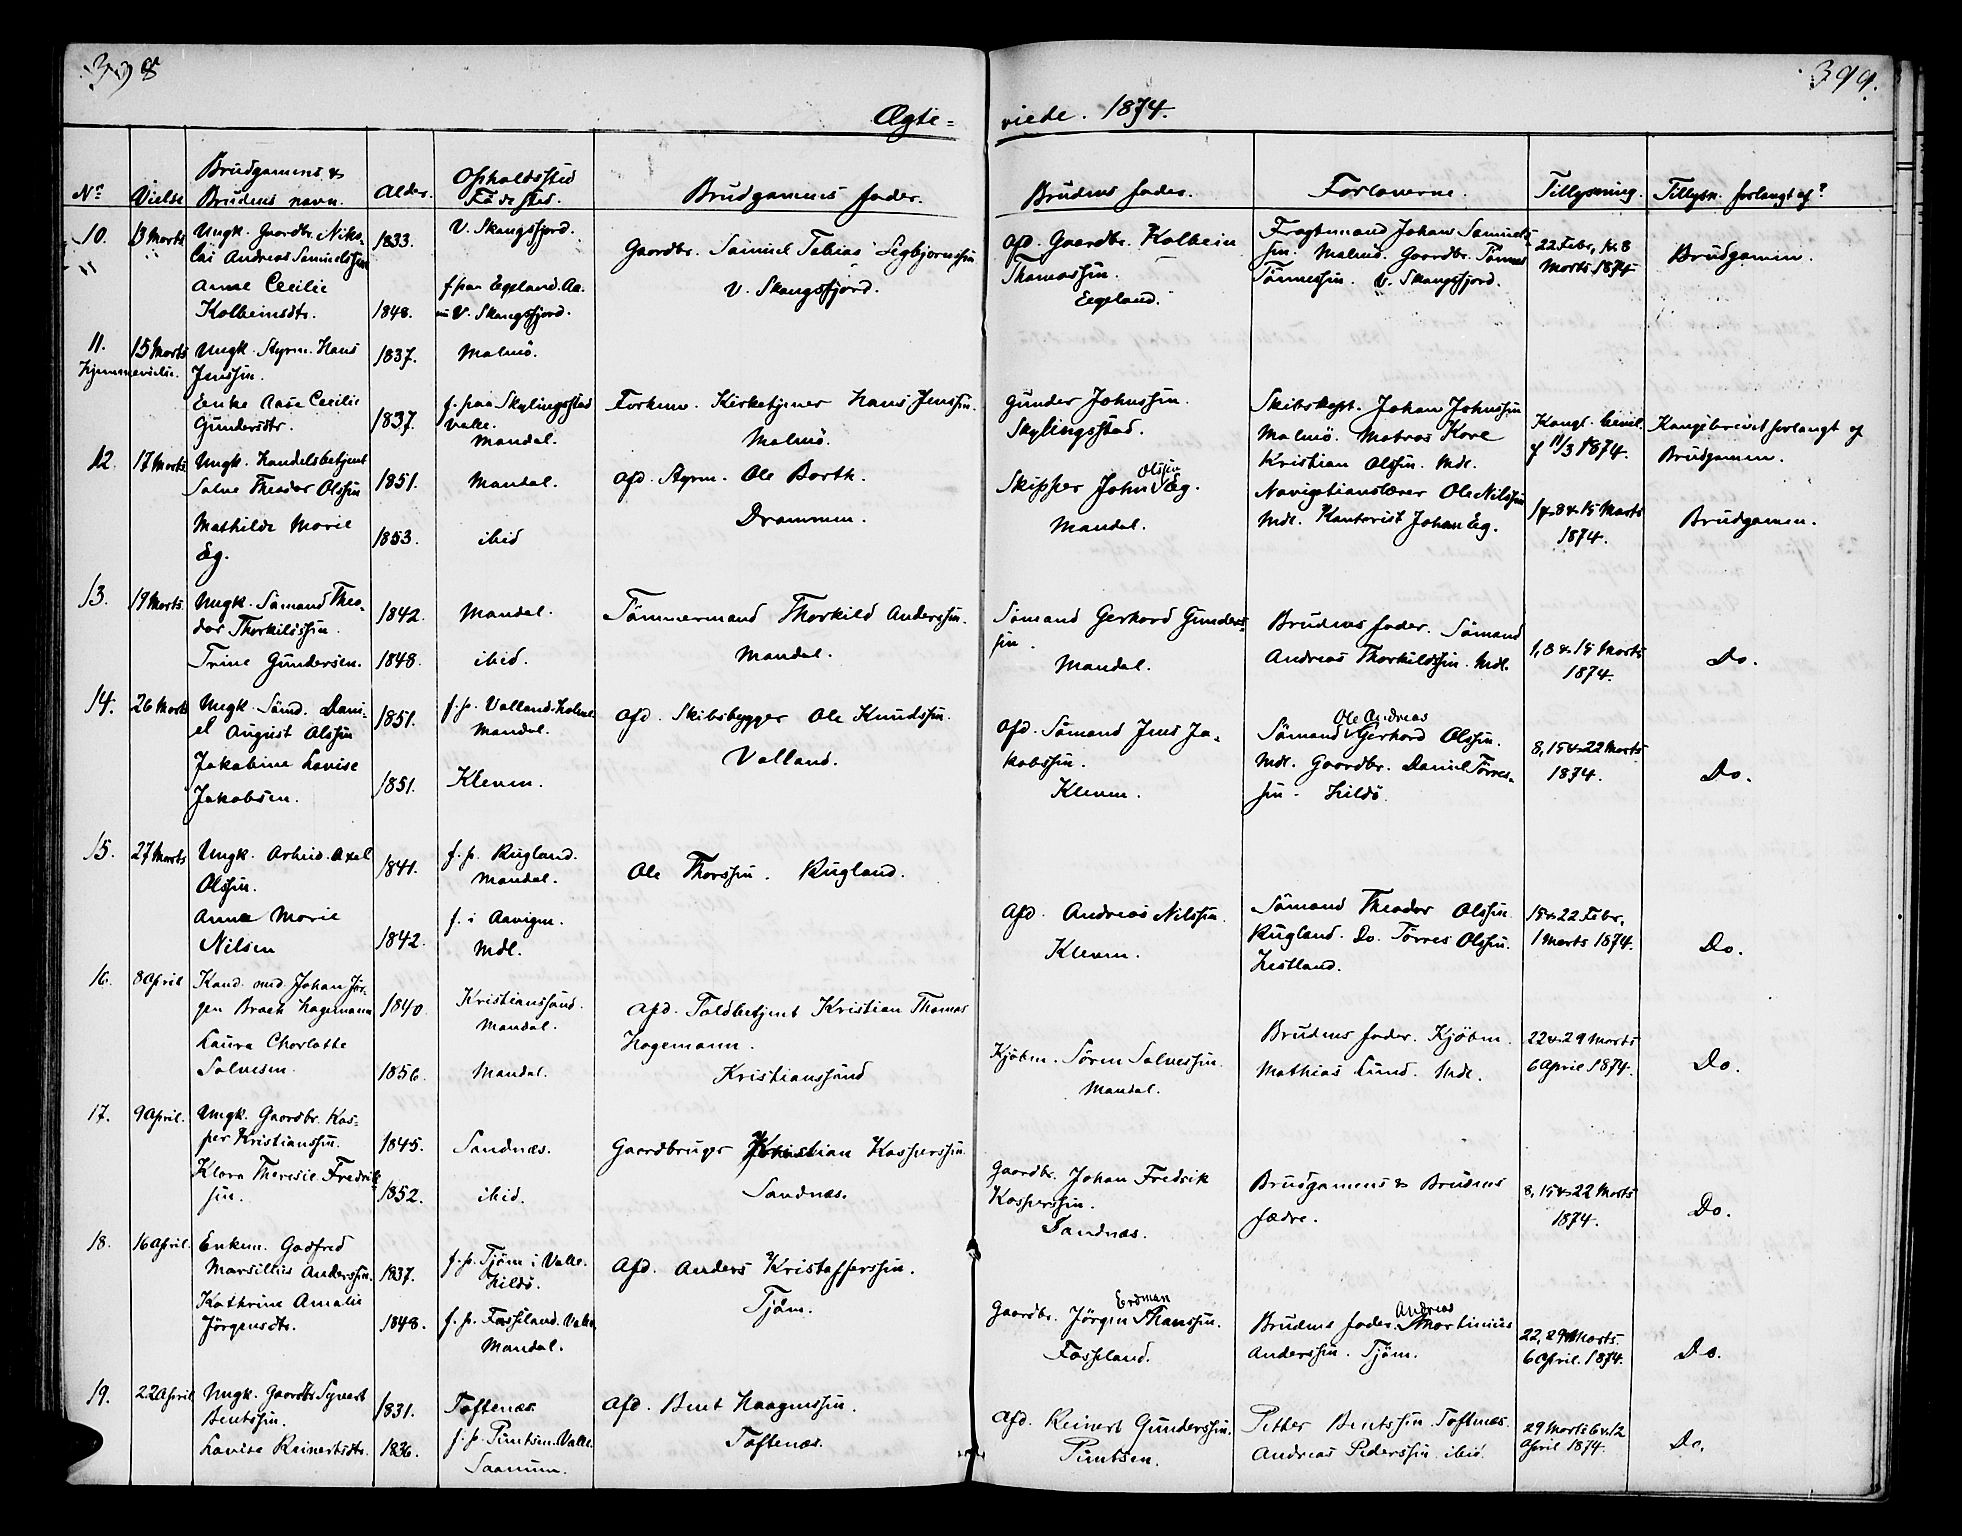 398
399.
Ægte=
viede. 1874.
No
Vielse
Brudgamens &
Brudens navn.
Alder.
Opholdssted
Fødested.
Brudgamens fader.
Brudens fader.
Forloverne.
Tillysning.
Tillysn. forlangt af?
10.
13 Marts
Ungk. Gaardbr. Niko-
lai Andreas Samuelssen
Anne Cecilie
Kolbeinsdtr.
1833.
1848.
V. Skangsfjord.
f. paa Egeland. Aa.
V. Skangsfjord.
Gaardbr. Samuel Tobias Sigbjørnssen
V. Skangsfjord.
Afd. Gaardbr. Kolbein
Thomassen.
Egeland.
Fragtemand Johan Samuels-
sen. Malmø. Gaardbr. Tønnes
Tønnessen. V. Skangsfjord.
22 Febr, 1 & 8
Marts 1874
Brudgamen.
11.
Hjemmevielse.
15 Marts
Ungk. Styrm. Hans
Jenssen.
Enke Aase Cecilie
Gundersdtr.
1837.
1837.
Malmø.
f. paa Skylingsstad
Valle.
Mandal.
Forhenv. Kirketjener Hans Jenssen.
Malmø.
Gunder Johnssen.
Skylingsstad.
Skibskapt. Johan Johnssen
Malmø. Matros Karl
Kristian Olssen. Mdl.
Kongl. bevil.
af 11/3 1874.
Kongebrevet forlangt af
Brudgamen.
12.
17 Marts
Ungk. Handelsbetjent
Salve Theodor Olssen
Mathilde Marie
Eg.
1851.
1853.
Mandal.
ibid
Afd. Styrm. Ole Barth.
Drammen.
Skipper John Olssen Eg.
Mandal.
Navigationslærer Ole Nilssen
Mdl. Kontorist Johan Eg.
1, 8 & 15 Marts
1874.
Brudgamen.
13.
19 Marts.
Ungk. Sømand Theo-
dor Thorkildssen.
Trine Gundersen.
1842.
1848.
Mandal.
ibid.
Tømmermand Thorkild Anderssen.
Mandal.
Sømand Gerhard Gunders-
sen.
Mandal.
Brudens fader. Sømand
Andreas Thorkildssen. Mdl.
1, 8 & 15 Marts
1874.
Do.
14.
26 Marts
Ungk. Sømd. Dani-
el August Olssen
Jakobine Lovise
Jakobsen.
1851.
1851.
f. p. Valland. Holme.
Mandal.
Kleven.
Afd. Skibsbygger Ole Knudssen.
Valland.
Afd. Sømand Jens Ja-
kobssen.
Kleven.
Sømand Ole Andreas Gerhard Olssen.
Mdl. Gaardbr. Daniel Tørres-
sen. Hildø.
8, 15 & 22 Marts
1874.
Do.
15.
27 Marts
Ungk. Arbeid. Axel
Olssen.
Anna Marie
Nilsen
1841.
1842.
f. p. Rugland.
Mandal.
f. i Aavigen.
Mdl.
Ole Thorssen. Rugland.
Afd. Andreas Nilssen.
Kleven.
Sømand Theodor Olssen.
Rugland. Do. Tørres Olssen.
Hestland.
15 & 22 Febr,
1 Marts 1874.
Do.
16.
8 April
Kand. med. Johan Jør-
gen Broch Hagemann
Laura Charlotte
Salvesen.
1840
1856.
Kristianssund.
Mandal.
Mandal.
Afd. Toldbetjent Kristian Thomas
Hagemann.
Kristianssund
Kjøbm. Søren Salvessen.
Mandal.
Brudens fader. Kjøbm.
Mathias Lund. Mdl.
22 & 29 Marts
6 April 1874.
Do.
17.
9 April.
Ungk. Gaardbr. Kas-
per Kristianssen.
Klara Theresie Fredrik
sen.
1845.
1852.
Sandnæs.
ibid.
Gaardbruger Kristian Kasperssen.
Sandnæs.
Gaardbr. Johan Fredrik
Kasperssen.
Sandnæs.
Brudgamens & Brudens
fædre.
8, 15 & 22 Marts
1874.
Do.
18.
16 April.
Enkem. Godfred
Marsilius Anderssen.
Kathrine Amalie
Jørgensdtr.
1837.
1848.
f. p. Tjøm i Valle.
Hildø.
f. p. Fasseland. Valle.
Mandal.
Afd. Anders Kristofferssen.
Tjøm.
Gaardbr. Jørgen Erdman Hanssen.
Fasseland.
Brudens fader. Andreas Martinius
Anderssen. Tjøm.
22, 29 Marts.
6 April. 1874.
Do.
19.
22 April
Ungk. Gaardbr. Syvert
Bentssen.
Lovise Reinertsdtr.
1831.
1836.
Toftenæs.
f. p. Pundsen. Valle.
Saanum.
Afd. Bent Haagenssen.
Toftenæs.
Afd. Reinert Gunderssen.
Pundsen.
Petter Bentssen. Toftenæs.
Andreas Pederssen ibid.
29 Marts 6 & 12
April 1874.
Do.